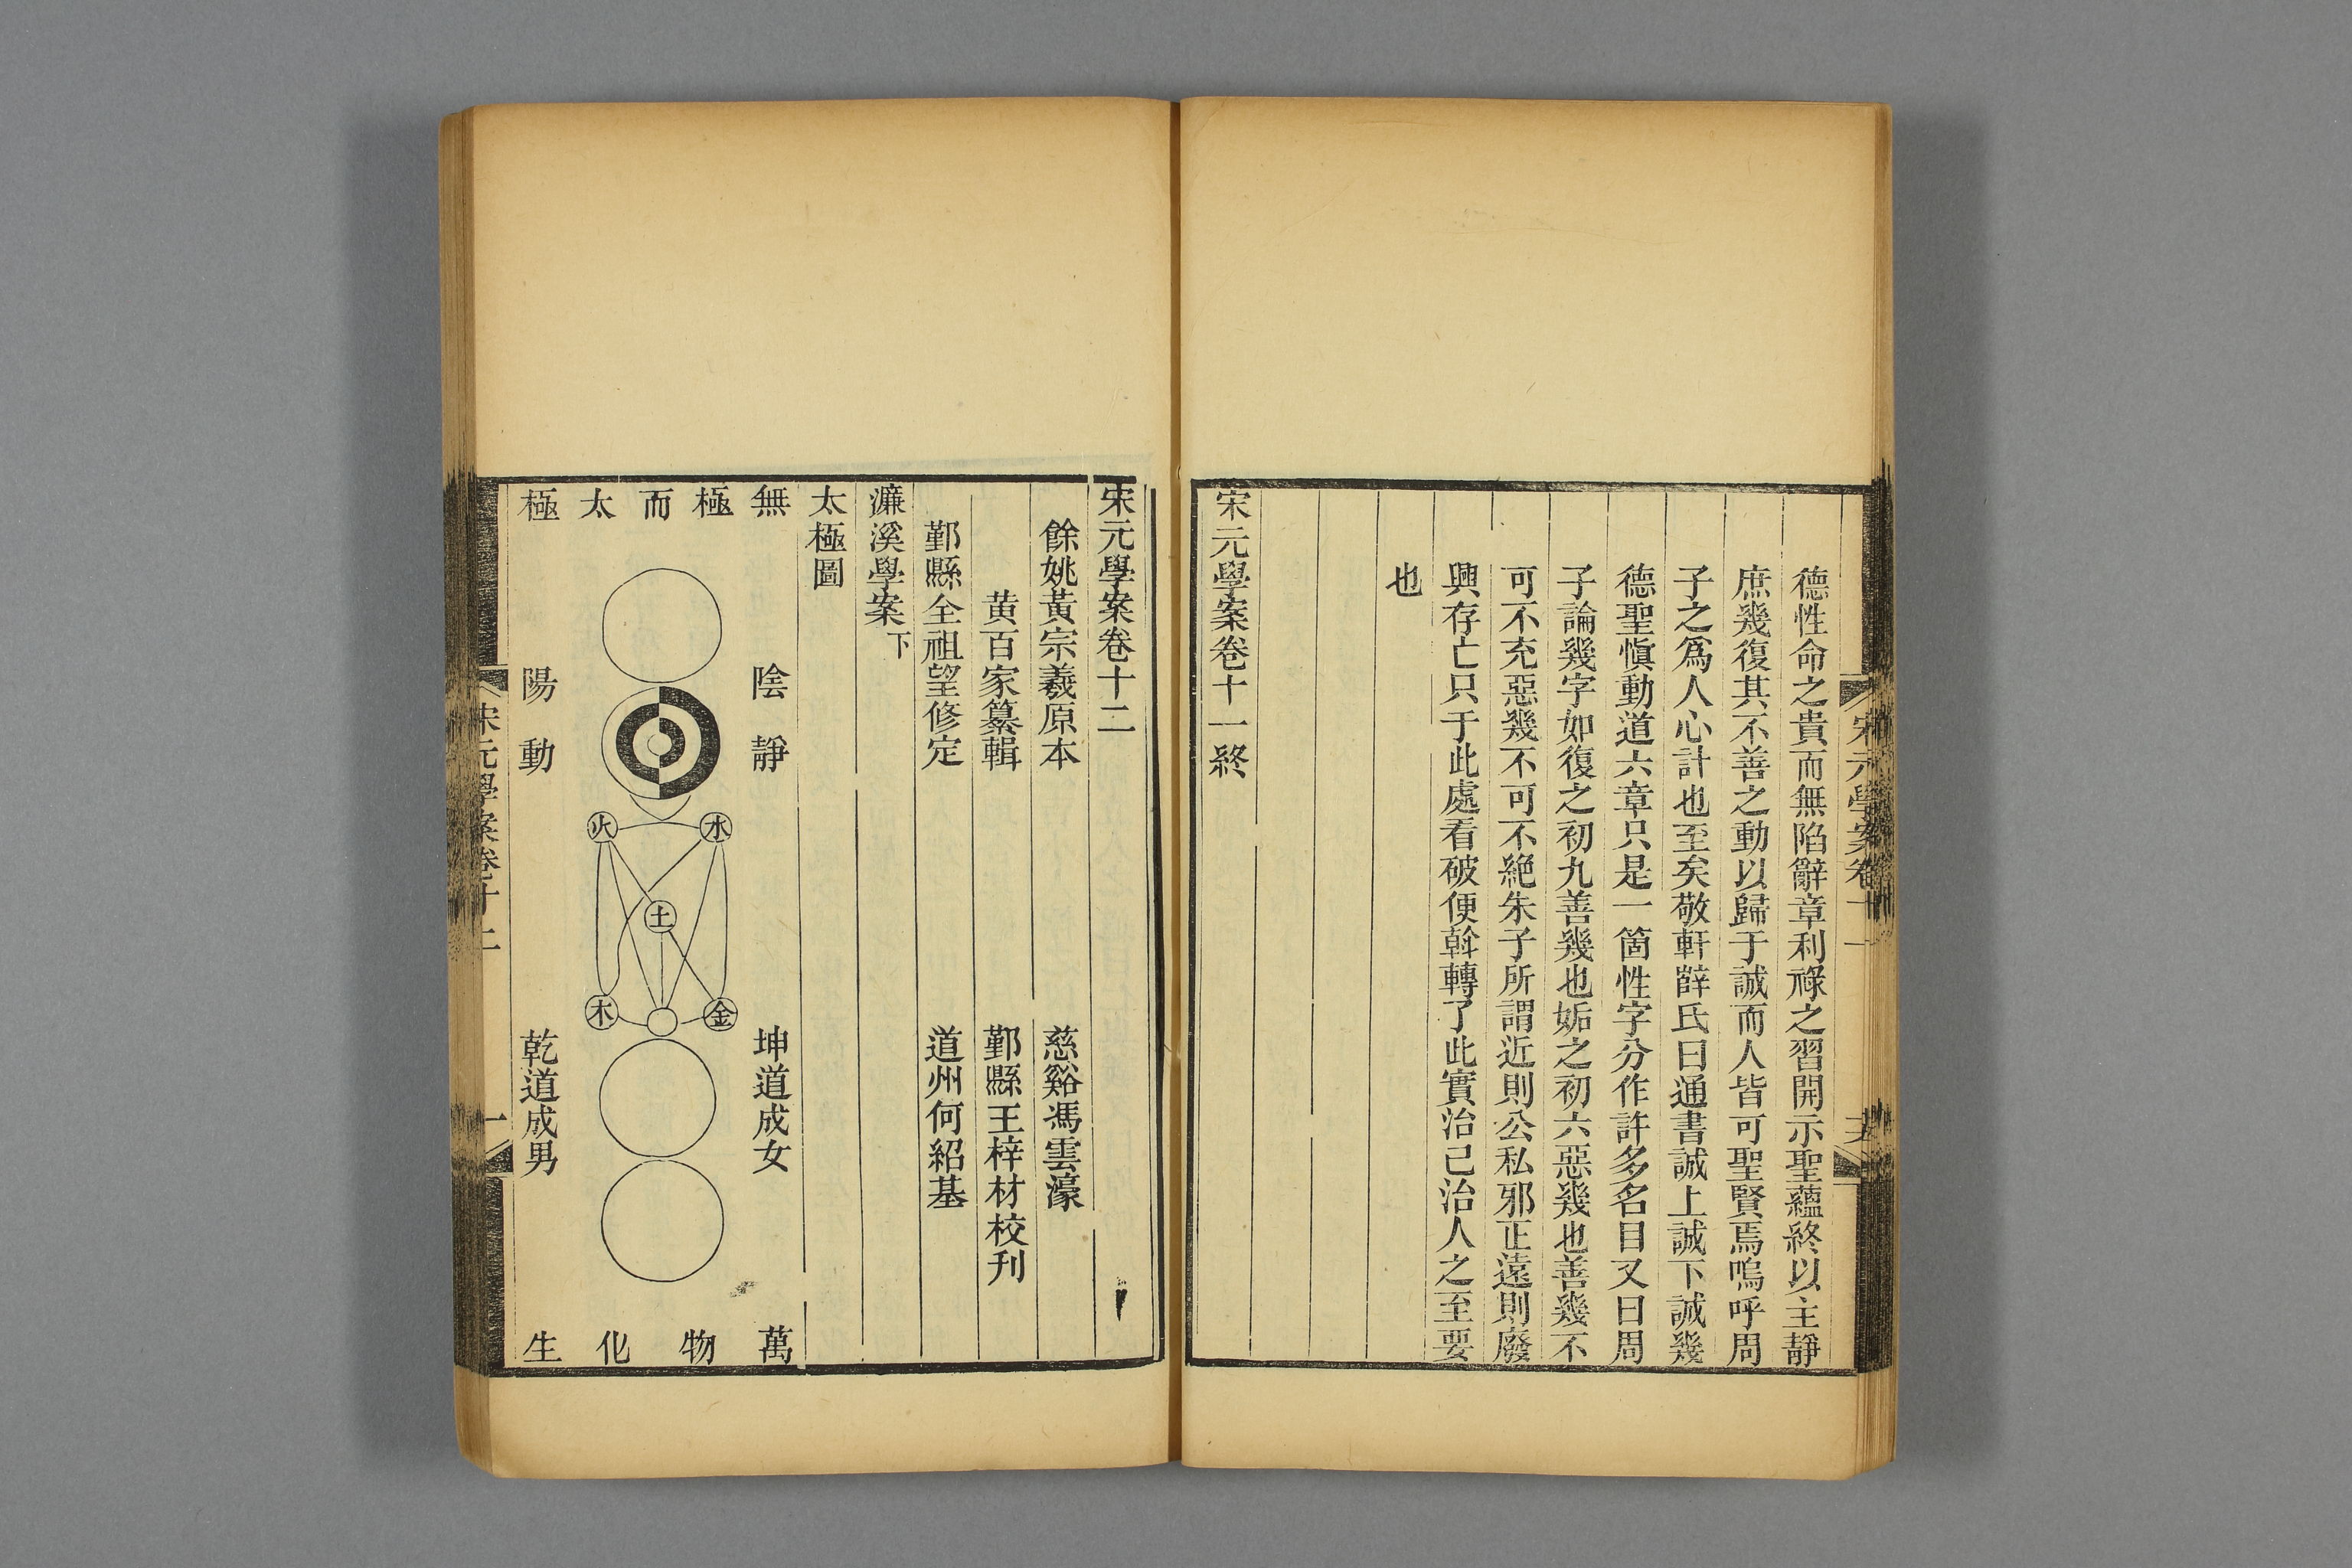 宋元學案卷十一
德性命之貴而無陷辭章利祿之習開示聖蘊終以主靜
庶幾復其不善之動以歸于誠而人皆可聖賢焉嗚呼周
子之爲人心計也至矣敬軒薛氏曰通書誠上誠下誠幾
德聖愼動道六章只是一箇性字分作許多名目又曰周
子論幾字如復之初九善幾也姤之初六惡幾也善幾不
可不充惡幾不可不絶朱子所謂近則公私邪正遠則廢
興存亡只于此處看破便斡轉了此實治己治人之至要
也
宋元學案卷十一終
宋元學案卷十二
餘姚黃宗羲原本
慈谿馮雲濠
黄百家纂輯
鄞縣王梓材校刊
鄞縣全祖望修定
道州何紹基
濂溪學案下
太極圖
無極而太極
陰靜
陽動
水
火
土
金
木
坤道成女
乾道成男
萬物化生
宋元學案卷十二
一